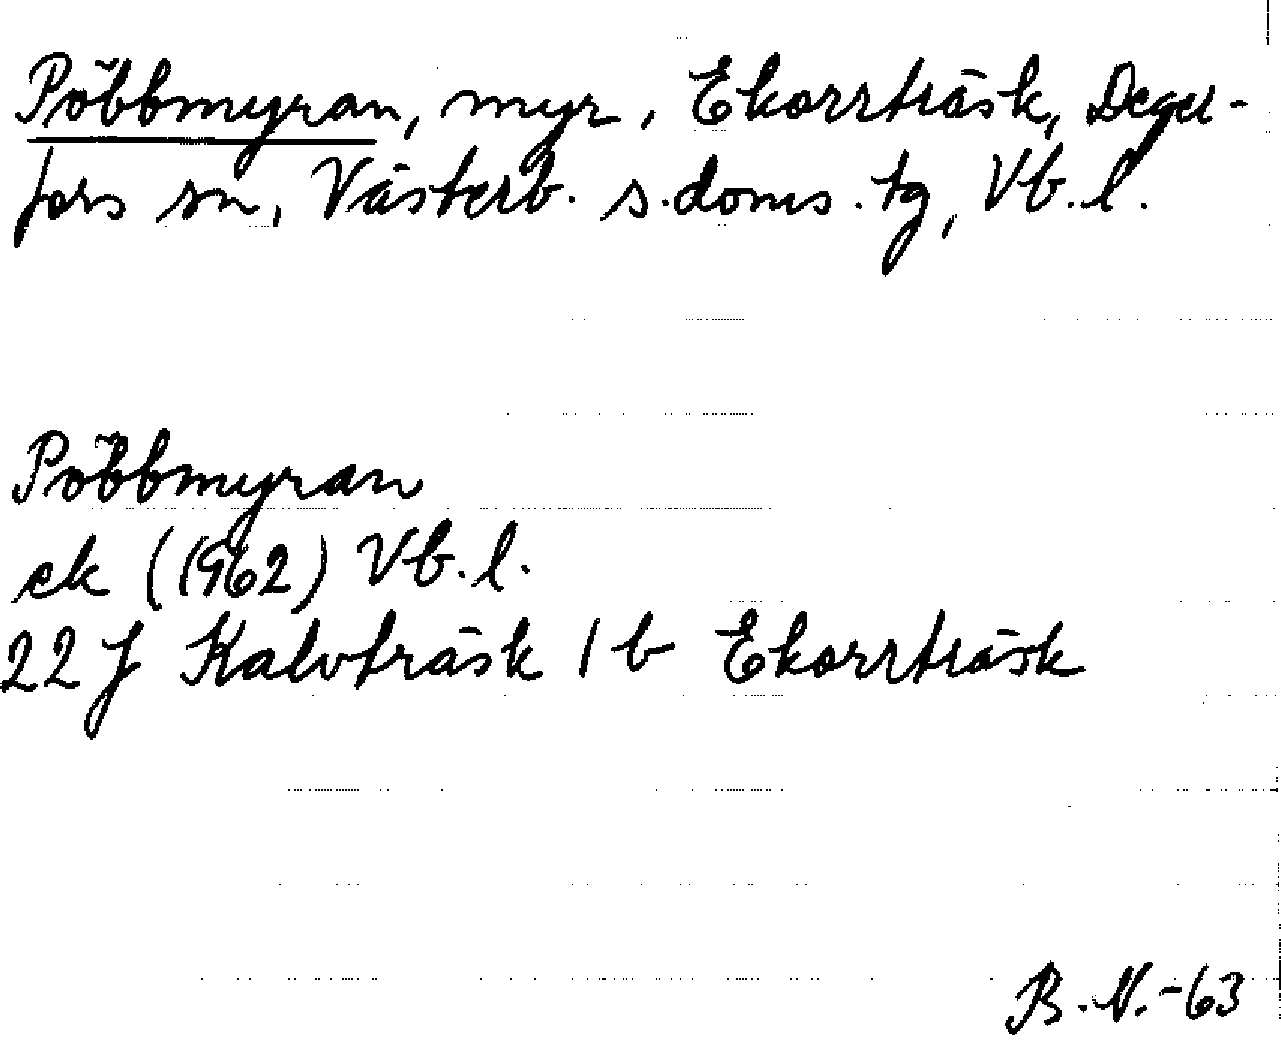 Pöbbmyran, myr, Ekorrträsk, Deger-
fors sn, Västerb. s. doms. tg, Vb. l.
Pöbbmyran
ek (1962) Vb. l.
22 J Kalvträsk 1 b Ekorrträsk
B. N. -63